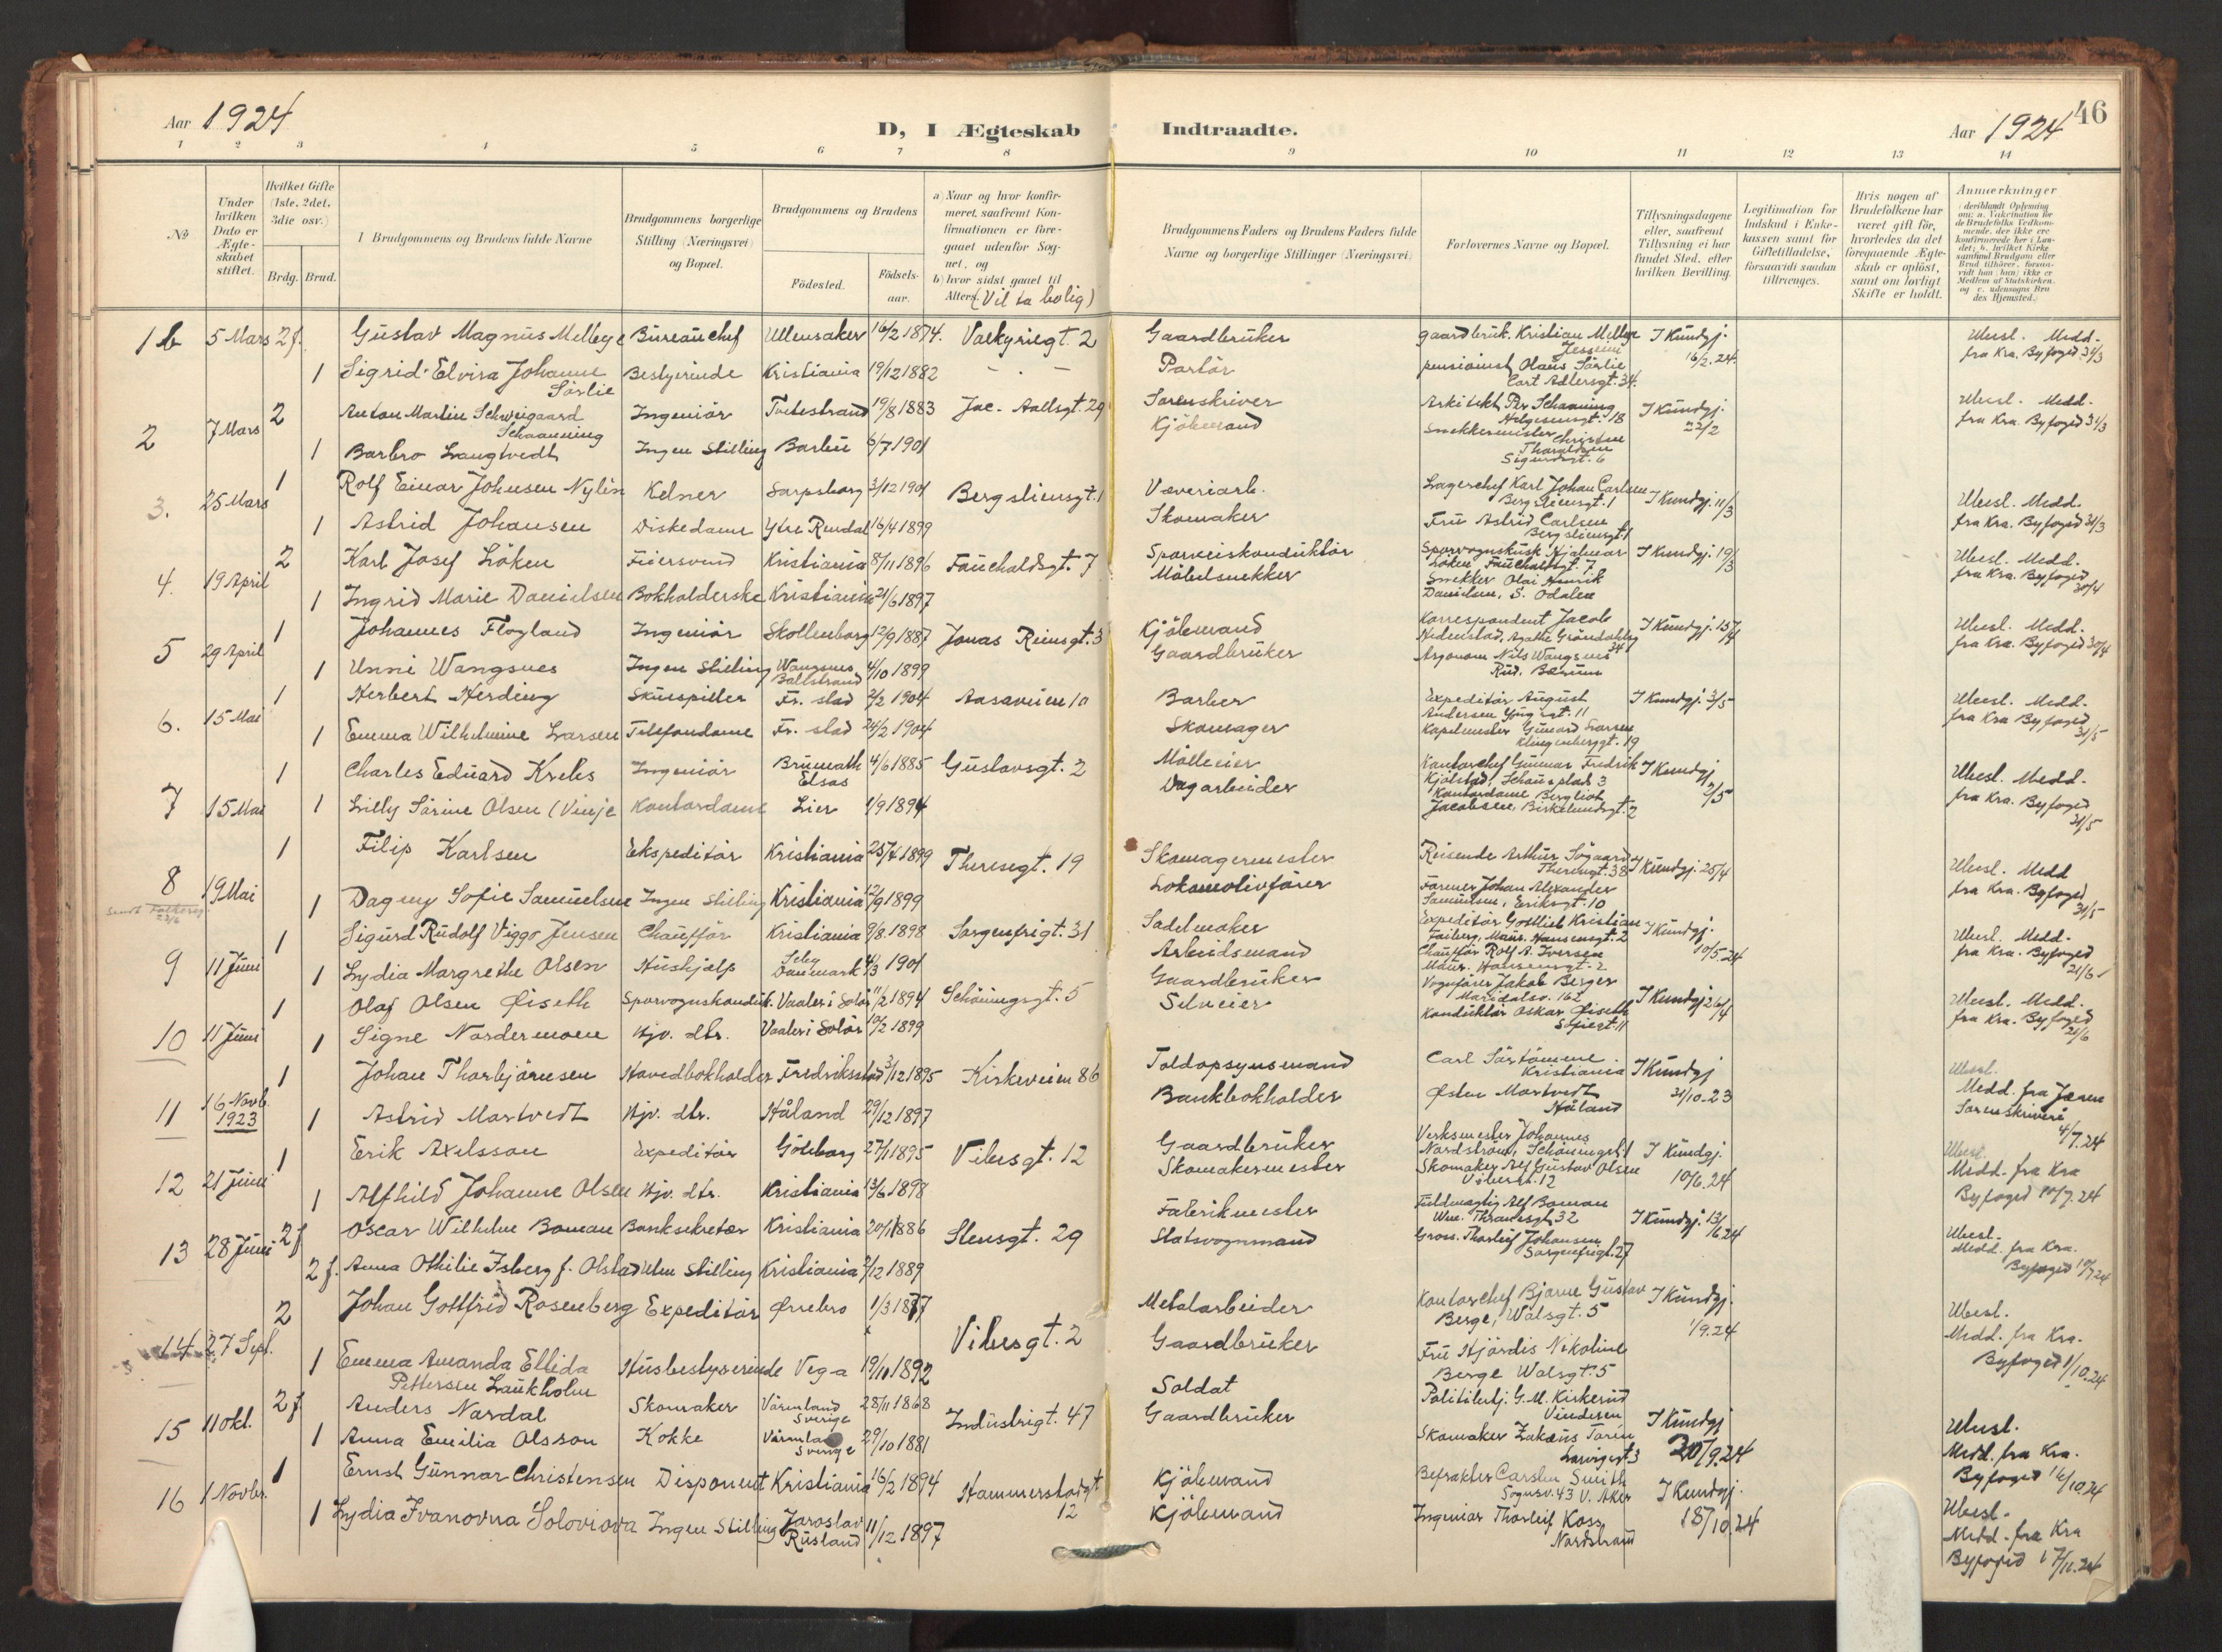 Aar 1924
D, I Ægteskab Indtraadte.
Aar 1924 46
1 2 3 4 5 6 7 8 9 10 11 12 13 14
No
Under hvilken Dato er Ægteskabet stiftet.
Hvilket Gifte (1ste, 2det, 3die osv.)
Brdg. Brud.
I Brudgommens og Brudens fulde Navne
Brudgommens borgerlige Stilling (Næringsvei) og Bopæl.
Brudgommens og Brudens
Fødested. Fødselsaar.
a) Naar og hvor konfirmeret, saafremt Konfirmationen er foregaaet udenfor Sognet, og
b) hvor sidst gaaet til Alters. (Vil ta bolig)
Brudgommens Faders og Brudens Faders fulde Navne og borgerlige Stillinger (Næringsvei)
Forlovernes Navne og Bopæl.
Tillysningsdagene eller, saafremt Tillysning ei har fundet Sted, efter hvilken Bevilling.
Legitimation for Indskud i Enkekassen samt for Giftetilladelse, forsaavidt saadan tiltrænges.
Hvis nogen af Brudefolkene har været gift før, hvorledes da det foregaaende Ægteskab er opløst, samt om lovligt Skifte er holdt.
Anmærkninger
(deriblandt Oplysning om: a. Vakcination for de Brudefolks Vedkommende, der ikke ere konfirmerede her i Landet; b. hvilket Kirkesamfund Brudgom eller Brud tilhører, forsaavidt han (hun) ikke er Medlem af Statskirken, og c. udensogns Brudes Hjemsted.)
1 b 5 Mars 2 f. Gustav Magnus Melbye Bureauchef Ullensaker 16/2 1874. Valkyriegt. 2 Gaardbruker gaardbruk. Kristian Melbye Jessheim I Kundgj. 16/2.24. Ubesl. Medd. fra Kra. Byfoged 31/3
1 Sigrid Elvira Johanne Sörlie Bestyrinde Kristiania 19/12 1882 - . - Portör pensionist Olaus Sörlie Cort Adlersgt. 34.
2 7 Mars 2 Anton Martin Schweigaard Schaanning Ingeniör Tvedestrand 19/8 1883 Jac. Aallsgt. 29 Sorenskriver Arkitekt Per Schanning Helgesensgt. 18 I Kundgj. 22/2 Ubesl. Medd. fra Kra. Byfoged 31/3
1 Barbro Langtvedt Ingen Stilling Barbu 6/7 1901 Kjöbmand Snekkermester Christen Thoraldsen Sigurdsgt. 6
3. 25 Mars 1 Rolf Einar Johnsen Nylén Kelner Sarpsborg 3/12 1901 Bergsliensgt. 1 Væveriarb. Lagerchef Karl Johan Carlsen Bergsliensgt. 1 I Kundgj. 11/3 Ubesl. Medd. fra Kra. Byfoged 31/3
1 Astrid Johansen Diskedame Ytre Rendal 16/4 1899 Skomaker Fru Astrid Carlsen Bergsliensgt 1
4. 19 April 2 Karl Josef Löken Feiersvend Kristiania 8/11 1896 Fauchaldsgt. 7 Sporveiskonduktör Sporvognskusk Hjalmar Löken Fauchaldsgt. 7 I Kundgj. 19/3 Ubesl. Medd. fra Kra. Byfoged 30/4
1 Ingrid Marie Danielsen Bokholderske Kristiania 21/6 1897 Möbelsnekker Snekker Olai Henrik Danielsen, S. Odalen
5 29 April 1 Johannes Flogland Ingeniör Skollenborg 12/9 1887 Jonas Reinsgt. 3 Kjöbmand Korrespondent Jacob Hedenstad, Agathe Gröndahlsg. 34 I Kundgj. 15/4 Ubesl. Medd. fra Kra. Byfoged 30/4
1 Unni Wangsnes Ingen Stilling Wangsnes Balestrand 4/10 1899 Gaardbruker Agronom Nils Wangsnes Rud, Bærum
6. 15 Mai 1 Herbert Herding Skuespiller Fr. stad 2/2 1904 Aasaveien 10 Barber Expeditör August Andersen Yngsgt. 11 I Kundgj. 3/5 Ubesl. Medd. fra Kra Byfoged 31/5
1 Emma Wilhelmine Larsen Telefondame Fr. stad 24/2 1904 Skomager Kapelmester Gunvard Larsen Klingenberggt. 19
7 15 Mai 1 Charles Eduard Krebs Ingeniör Brumath Elsas 4/6 1885 Gustavsgt. 2 Mölleeier Kontorchef Gunnar Fredrik Kjölstad, Schous plads 3 I Kundgj. 2/5 Ubesl. Medd. fra Kra. Byfoged 31/5
1 Lilly Sörine Olsen (Vinje Kontordame Lier 1/9 1894 Dagarbeider Kontordame Bergliot Jacobsen, Birkelundsgt. 2
8 19 Mai 1 Filip Karlsen Ekspeditör Kristiania 25/4 1899 Theresegt. 19 Skomagermester Reisende Arthur Sögaard Theresegt. 38 I Kundgj. 25/4 Ubesl. Medd fra Kra. Byfoged 31/5
1 Dagny Sofie Samuelsen Ingen Stilling Kristiania 12/9 1899 Lokomotivförer Farmer Johan Alexander Samuelsen, Eriksgt. 10
9 11 Juni 1 Sigurd Rudolf Viggo Jensen Chaufför Kristiania 9/8. 1898 Sorgenfrigt. 31 Sadelmaker Expeditör Gottlieb Kristian Faiberg, Maur. Hansensgt. 2 I Kundgj. 10/5 24 Ubesl. Medd. fra Kra. Byfoged 21/6
1 Lydia Margrethe Olsen Hushjælp Danmark 4/3 1901 Arbeidsmand Chaufför Rolf A. Iversen Maur. Hansensgt. 2
10 11 Juni 1 Olaf Olsen Øiseth Sporvognskonduk. Vaaler i Solör 11/2 1894 Schöningsgt. 5 Gaardbruker Vognförer Jakob Berger Maridalsv. 162 I Kundgj 26/4 Ubesl. Medd. fra Kra. Byfoged 21/6
1 Signe Nordermoen Hjv. dtr. Vaaler i Solör 10/2 1899 Selveier Konduktör Oskar Øiseth Sofiegt. 11
11 16 Novb. 1923 1 Johan Thorbjörnsen Hovedbokholder Fredrikstad 3/12 1895 Kirkeveien 86 Toldopsynsmand Carl Kristiania I Kundgj 31/10-23 Ubesl. Medd. fra Jæren Sorenskriveri 4/7.24
1 Astrid Mortvedt Hjv. dtr. Håland 29/12 1897 Bankbokholder Østen Mortvedt Håland
12 21 Juni 1 Erik Axelsson Expeditör Göteborg 27/1 1895 Vibesgt. 12 Gaardbruker Verksmester Johannes Nordström, Schöningsgt 1 I Kundgj. 10/6.24 Ubesl. Medd. fra Kra Byfoged 10/7.24
1 Alfhild Johanne Olsen Hjv. dtr. Kristiania 13/6 1898 Skomakermester Skomaker Alf Gustav Olsen Vibesgt. 12
13 28 Juni 2 f Oscar Wilhelm Boman Banksekretær Kristiania 20/1 1886 Stensgt. 29 Fabrikmester Fuldmægtig Alf Boman Wm. Thranesgt 32 I Kundgj. 13/6 24 Ubesl. Medd. fra Kra. Byfoged 10/7 24
2 f. Anna Othilie Isberg f. Olstad Uten Stilling Kristiania 2/12 1889 Slotsvognmand Gross. Thorleif Johansen Sorgenfrigt. 27
14 27 Sept. 2 Johan Gottfrid Rosenberg Expeditör Ørrebro 1/3 1877 Vibesgt. 2 Metalarbeider Kontorchef Bjarne Gustav Berge, Walsgt. 5 I Kundgj. 1/9.24 Ubesl. Medd. fra Kra. Byfoged 1/10.24
1 Emma Amanda Ellida Pettersen Laukholm Husbestyrerinde Vega 19/10 1892 Gaardbruker Fru Hjördis Nikoline Berge Walsgt. 5
15 11 Okt. 2 f Anders Nordal Skomaker Värmland Sverige 28/11 1868 Industrigt. 47 Soldat Politibetj. G. M. Kirkerud Vinderen I Kundgj 20/9.24 Ubesl. Medd. fra Kra. Byfoged 14/10 24
1 Anna Emilia Olsson Kokke Värmland Sverige 29/10 1881 Gaardbruker Skomaker Zakæus
16 1 Novbr. 1 Ernst Gunnar Christensen Disponent Kristiania 16/2 1894 Hammerstadgt 12 Kjöbmand Befrakter Carsten Smith Sognsv. 43 V. Aker I Kundgj. 18/10.24 Ubesl. Medd. fra Kra Byfoged 17/11.24
1 Lydia Ivanovna Soloviova Ingen Stilling Jaroslav Rusland 11/12 1897 Kjöbmand Ingeniör Thorleif Koss Nordstrand